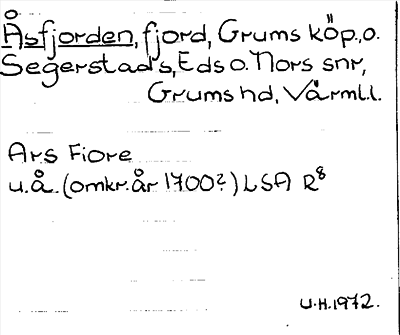 Åsfjorden, fjord, Grums köp., o.
Segerstads, Eds o. Nors snr,
Grums hd, Värml.l.
Ars Fiore
u.å. (omkr. år 1700?) LSA R8
U.H. 1972.